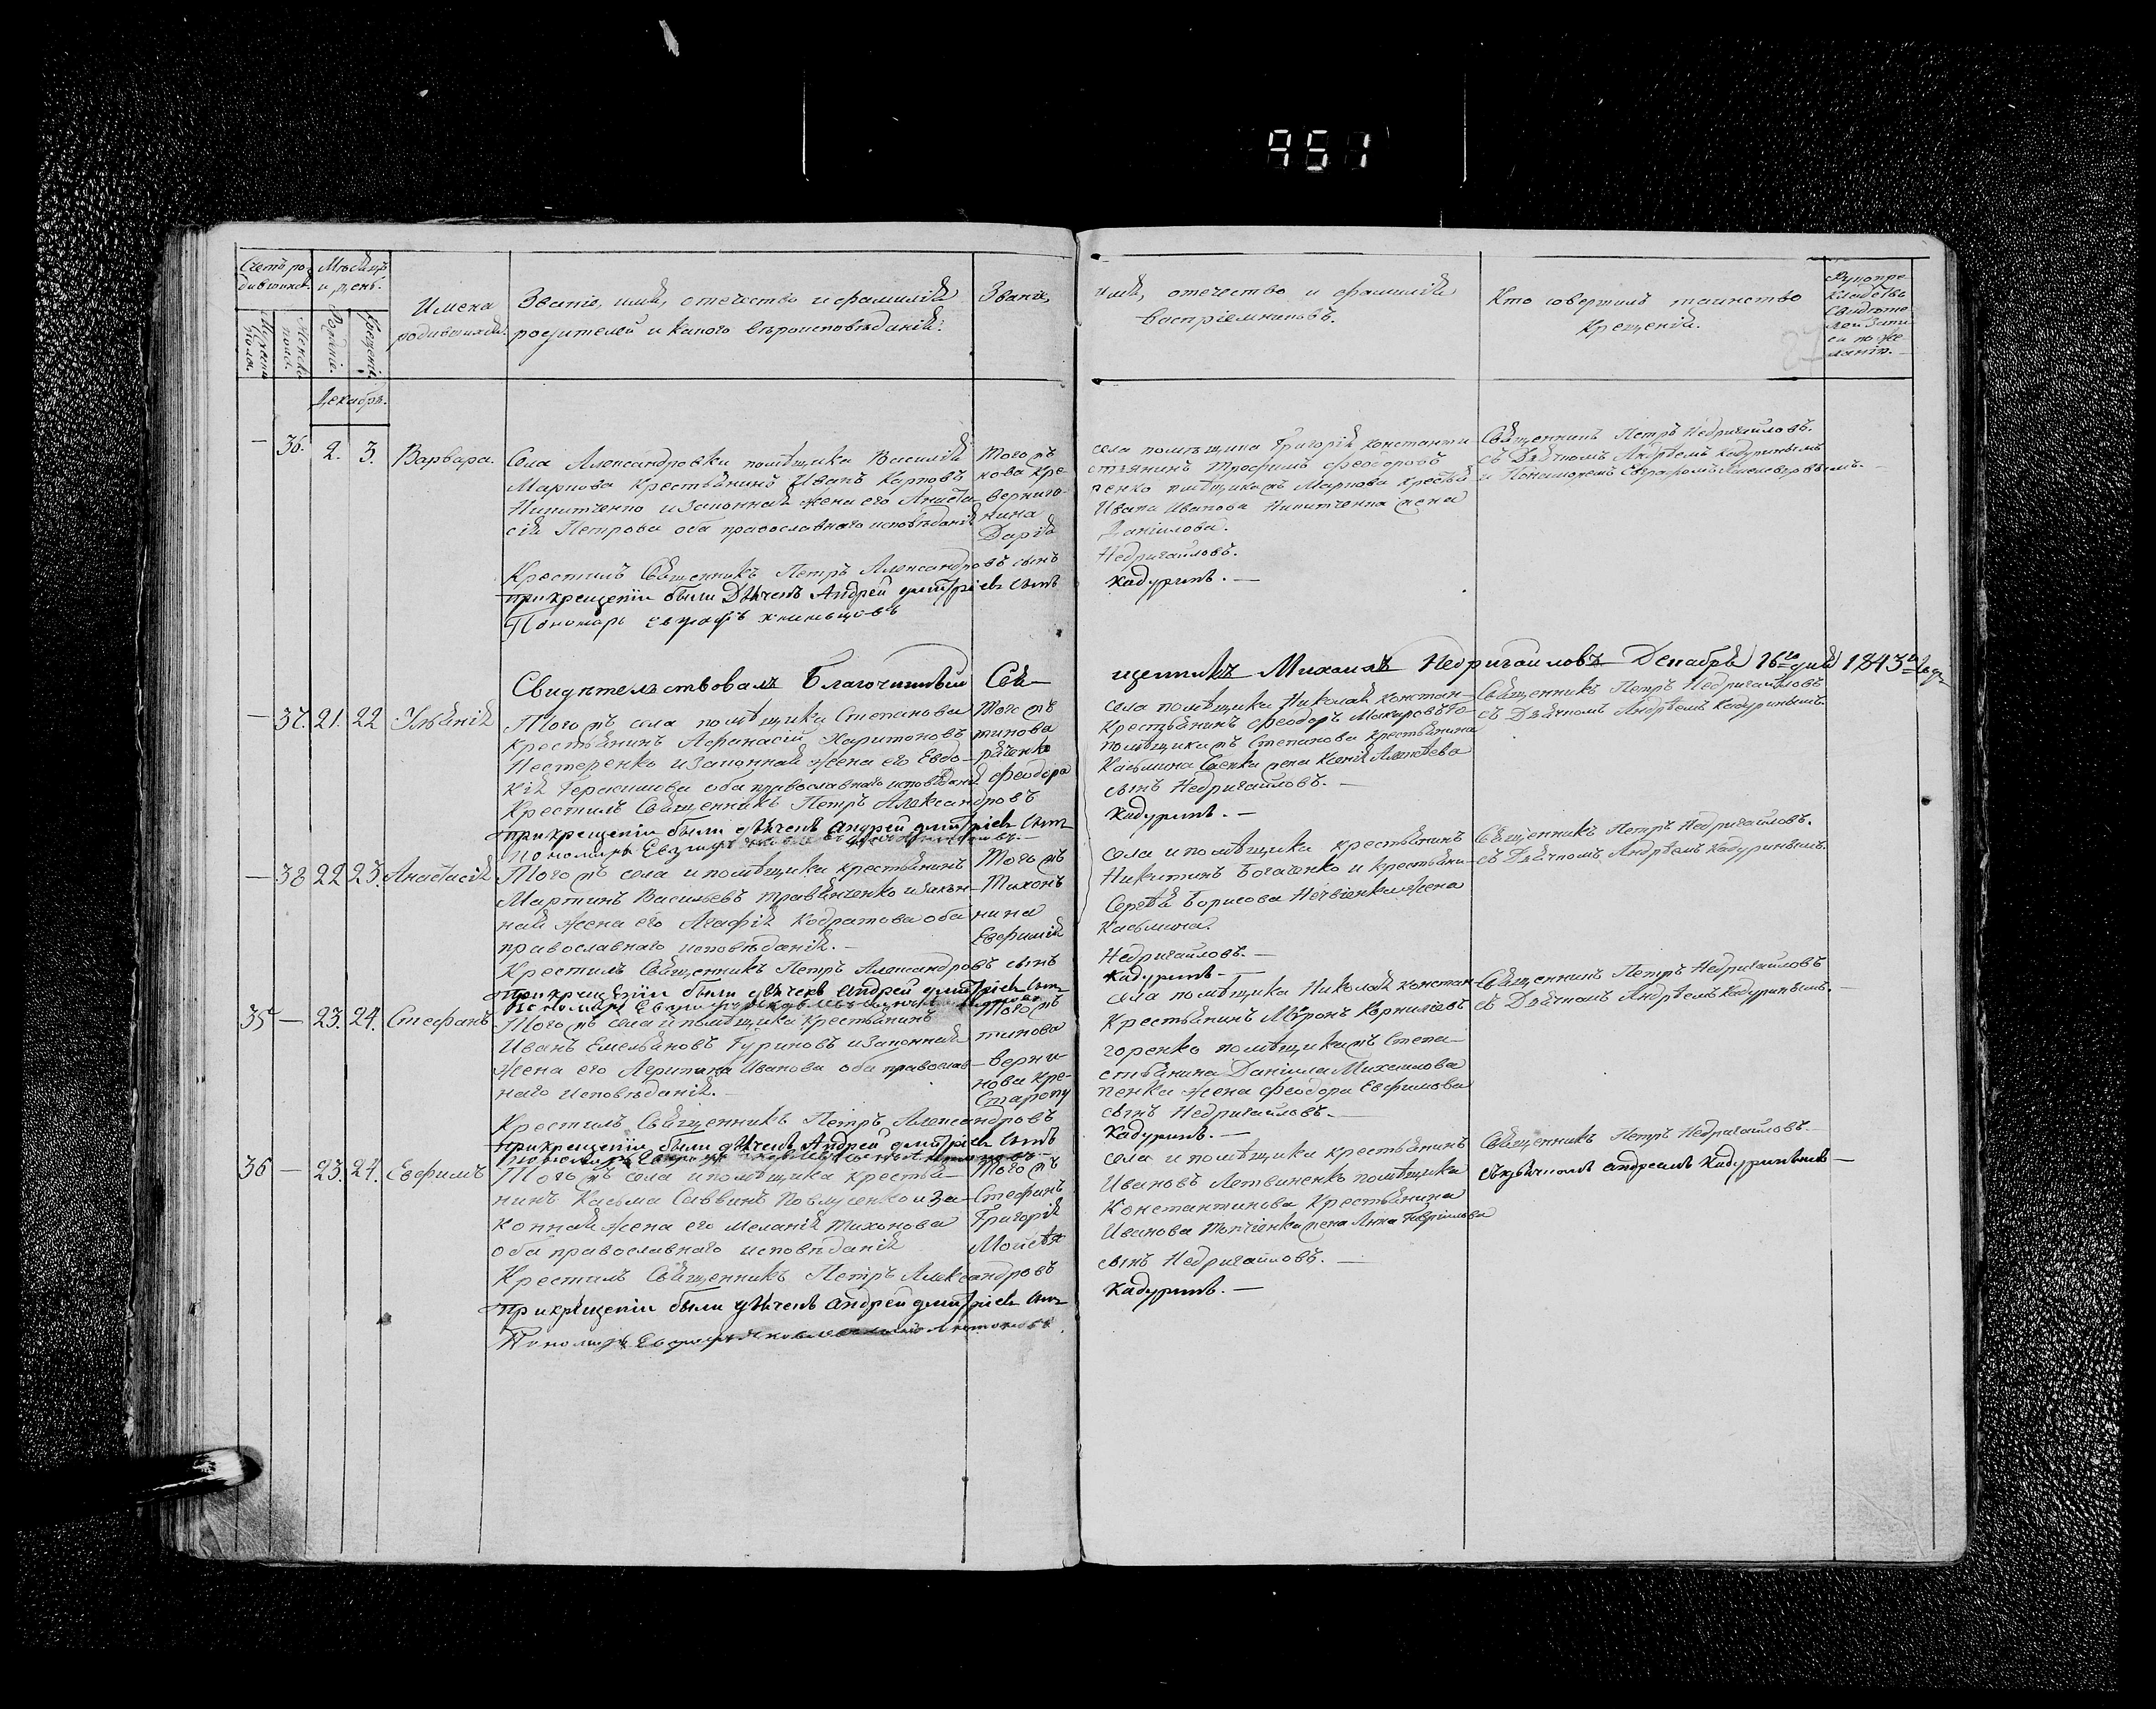 951
Счетъ ро-
дившихся.
Мѣсяцъ
и день.
Мужеска
пола.
Женска
пола.
Рожденія.
Крещенія.
Имена
родившихся.
Званіе, имя, отечество и фамилія
родителей и какого вѣроисповѣданія.
Званіе,
имя, отечество и фамилія
воспріемниковъ.
Кто совершилъ таинство
крещенія.
Рукопри-
кладство
свидѣте-
лей запи-
си по же-
ланію.
27
Декабрь.
— 36. 2. 3. Варвара.
Села Александровки помѣщика Василія
Маркова крестьянинъ Иванъ Карповъ
Никитченко и законная жена его Анаста-
сія Петрова оба православнаго исповѣданія
Крестилъ Священникъ Петръ Александровъ сынъ
при крещеніи были Дьячекъ Андрей Дмитріевъ сынъ
Пономарь Евграфъ
Того жъ
кова кре-
верниго-
нина
Дарія
села помѣщика Григорія Константи-
стьянинъ Трофимъ Феодоровъ
ненко помѣщика жъ Маркова крестья-
Ивана Иванова Никитченка жена
Даніилова.
Недригайловъ.
Кадуринъ. —
Священникъ Петръ Недригайловъ.
съ Дьячкомъ Андреемъ Кадуринымъ
и Пономаремъ Евграфомъ
Свидѣтельствовалъ Благочинный Свя-
щенникъ Михаилъ Недригайловъ Декабря 16го дня 1843го года
— 37. 21. 22 Ульянія
Того жъ села помѣщика Степанова
крестьянинъ Афанасій Харитоновъ
Нестеренко и законная жена его Евдо-
кія Герасимова оба православнаго исповѣданія
Крестилъ Священникъ Петръ Александровъ
при крещеніи были дьячекъ Андрей Дмитріевъ сынъ
Пономарь Евграфъ
Того жъ
тинова
раченко
Феодора
села помѣщика Николая Констан-
крестьянинъ Феодоръ Макаровъ Го-
помѣщика жъ Степанова крестьянина
Касьмина жена Ксенія Алексѣева
сынъ Недригайловъ. —
Кадуринъ. —
Священникъ Петръ Недригайловъ
съ Дьячкомъ Андреемъ Кадуринымъ.
— 38 22 23. Анастасія
Того жъ села и помѣщика крестьянинъ
Мартинъ Васильевъ Травянченко и закон-
ная жена его Агафія Кодратова оба
православнаго исповѣданія. —
Крестилъ Священникъ Петръ Александровъ сынъ
при крещеніи были дьячекъ Андрей Дмитріевъ сынъ
Пономарь Евграфъ
Того жъ
Тихонъ
нина
Евфимія
села и помѣщика крестьянинъ
Никитинъ Богаченко и крестьяни-
Сергѣя Борисова жена
Касьмина.
Недригайловъ. —
Кадуринъ —
Священникъ Петръ Недригайловъ.
съ Дьячкомъ Андреемъ Кадуринымъ.
35 — 23. 24. Стефанъ
Того жъ села и помѣщика крестьянинъ
Иванъ Емельяновъ Гуриновъ и законная
жена его Иванова оба православ-
наго исповѣданія. —
Крестилъ Священникъ Петръ Александровъ
при крещеніи были дьячекъ Андрей Дмитріевъ сынъ
Пономарь Евграфъ
Того жъ
тинова
— верни
нова кре-
Старопу
села помѣщика Николая Констан-
крестьянинъ Миронъ Корниліевъ
горенко помѣщика жъ Степа-
стьянина Даніила Михаилова
пенка жена Феодора Евфимова
сынъ Недригайловъ. —
Кадуринъ. —
Священникъ Петръ Недригайловъ
съ Дьячкомъ Андреемъ Кадуринымъ. —
36 — 23. 24. Евфимъ
Того жъ села и помѣщика крестья-
нинъ Касьма Саввинъ и за-
конная жена его Меланія Тихонова
оба православнаго исповѣданія
Крестилъ Священникъ Петръ Александровъ
при крещеніи были дьячекъ Андрей Дмитріевъ сынъ
Пономарь Евграфъ
Того жъ
Стефанъ
Григорія
Моисѣя
села и помѣщика крестьянинъ
Ивановъ Летвиненко помѣщика
Константинова крестьянина
Иванова жена Анна Гавріилова
сынъ Недригайловъ. —
Кадуринъ. —
Священникъ Петръ Недригайловъ —
съ дьячкомъ Андреемъ Кадуринымъ —